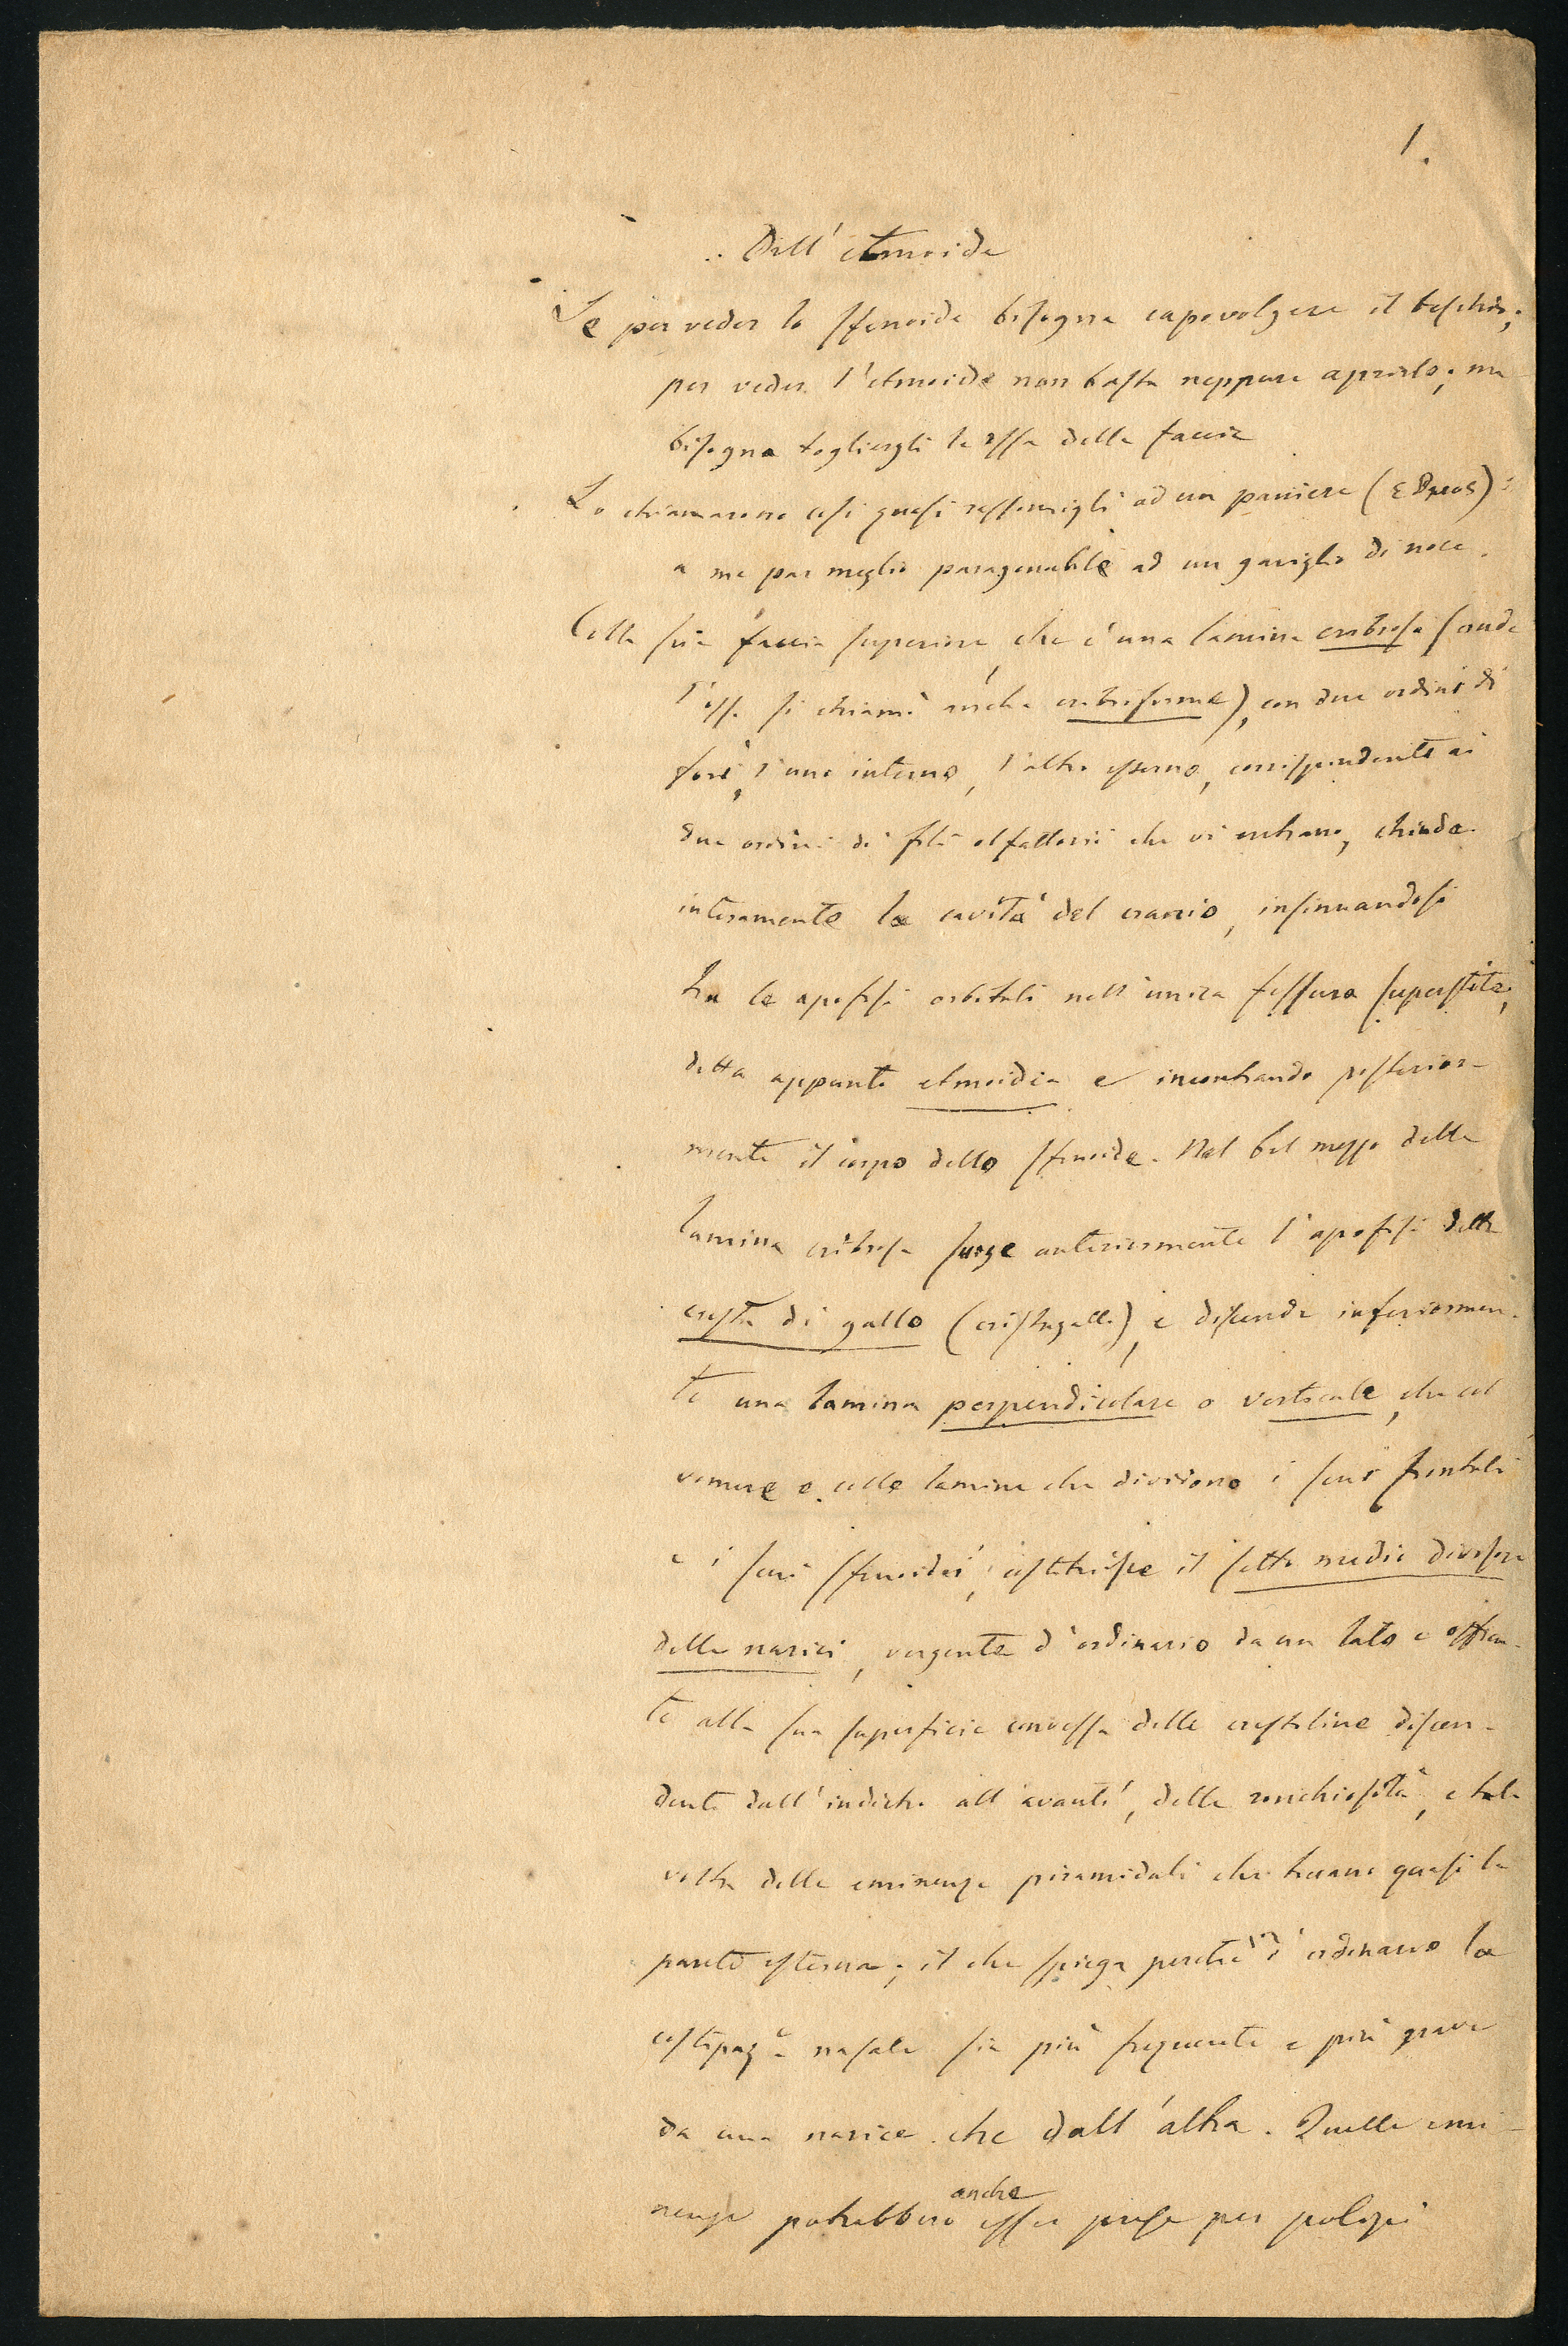 1.
Dell'etmoide
Se per veder lo sfenoide bisogna capovolgere il teschio;
per veder l'etmoide non basta neppure aprirlo; ma
bisogna togliergli le ossa della faccia
Lo chiamarono così quasi rassomigli ad un paniere (εθμος):
a me par meglio paragonabile ad un gariglio di noce.
Colla sua faccia superiore, che è una lamina cribrosa (onde
l'osso si chiamò anche cribriforme), con due ordini di
fori, l'uno interno, l'altro esterno, corrispondente ai
due ordini di fili olfattorii che vi entrano, chiude
interamente la cavità del cranio, insinuandosi
tra le apofisi orbitali nell'unica fessura superstite,
detta appunto etmoidea e incontrando posterior-
mente il corpo dello sfenoide. Nel bel mezzo della
lamina cribrosa sorge anteriormente l'apofisi detta
cresta di gallo (cristagalli), e discende inferiormen-
te una lamina perpendicolare o verticale, che col
vomere e colle lamine che dividono i seni frontali
e i seni sfenoidei, costituisce il setto medio divisore
delle narici, vergente d'ordinario da un lato e offren-
te alla sua superficie convessa delle crestoline discen-
denti dall'indietro all'avanti, delle ronchiosità, e tal-
volta delle eminenze piramidali che toccano quasi la
parete esterna; il che spiega perchè d'ordinario la
costipaz.e nasale sia più frequente e più grave
da una narice che dall'altra. Quelle emi-
nenze potrebbero anche esser prese per polipi